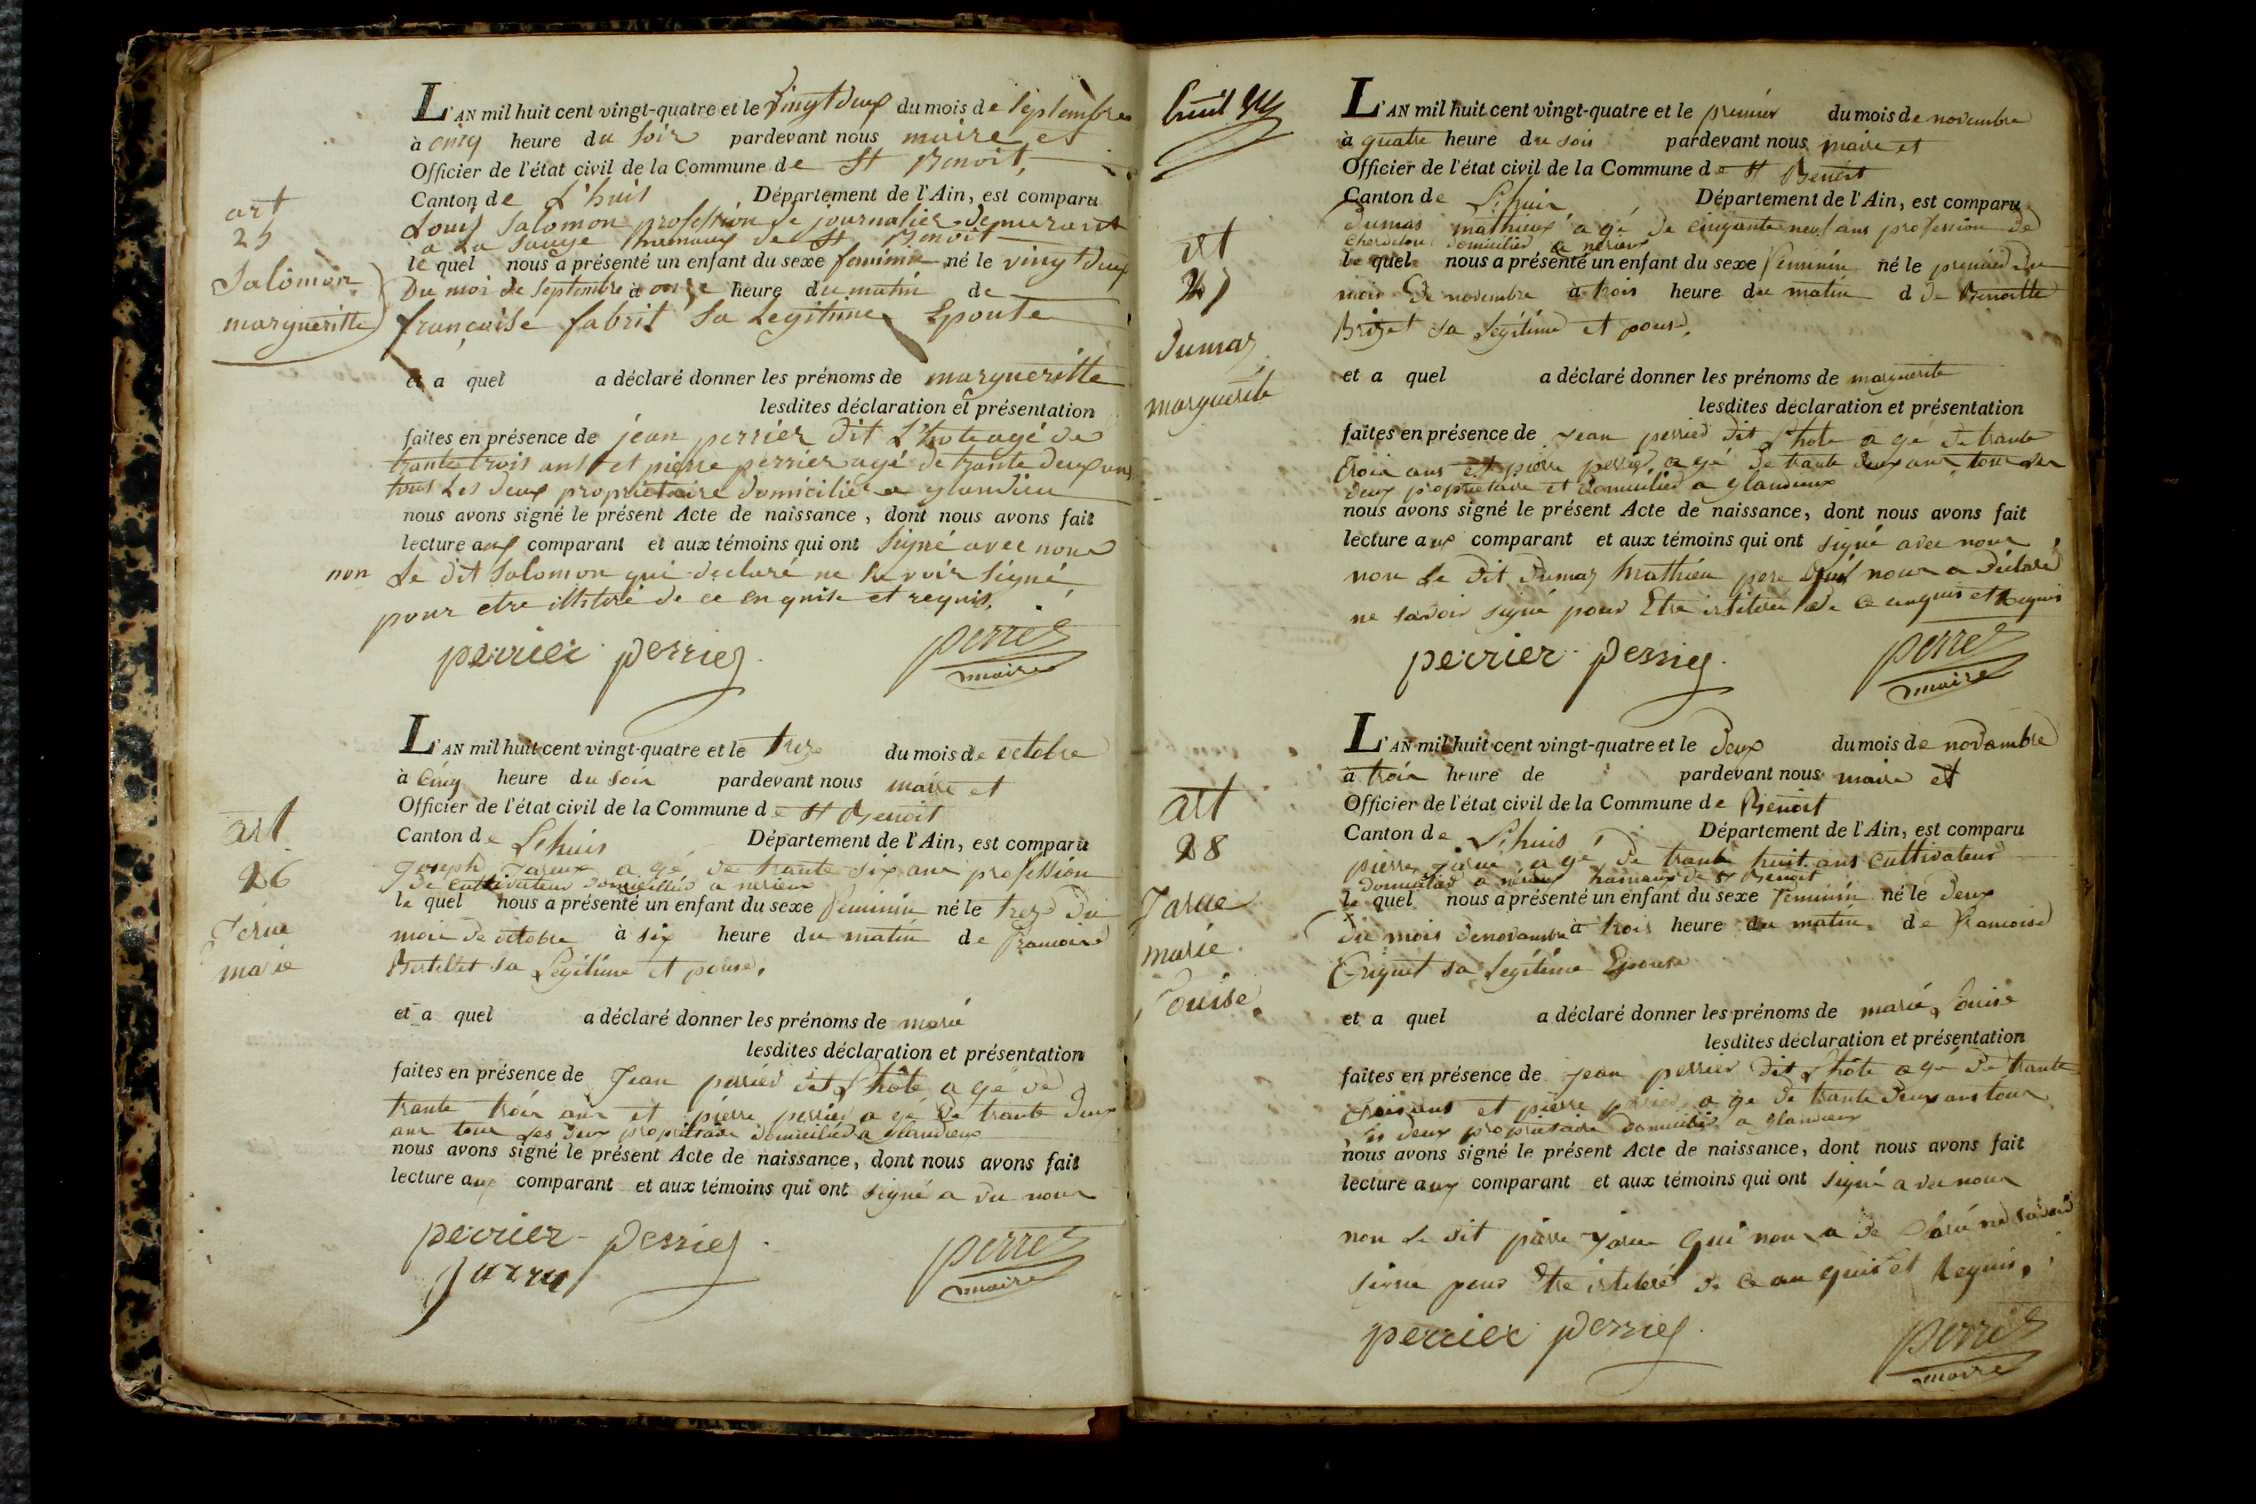 art
25
Salomon
margueritte
L'AN mil huit cent vingt-quatre et le vingt deux du mois de Septembre
à cinq heure du Soir pardevant nous maire et
Officier de l'état civil de la Commune de St Benoit,
Canton de L'huis Département de l'Ain, est comparu
Louis Salomon profession de journalier demeurant
a La Sauge hameaux de St Benoit
le quel nous a présenté un enfant du sexe feminin né le vingt deux
Du moi de Septembre à onze heure du matin de
françoise fabrit Sa Legitime Epouse
et a quel a déclaré donner les prénoms de margueritte
lesdites déclaration et présentation
faites en présence de jean perrier dit L'hote agé de
trante trois ans et pierre perrier agé de trante deux ans
tous Les deux propriétaire domicilier a glandieu
nous avons signé le présent Acte de naissance, dont nous avons fait
lecture aux comparant et aux témoins qui ont Signé avec nous
non Le dit Salomon qui declaré ne savoir signé
pour etre ilitéré de ce en quise et requis.
perrier perrier perret
maire
art
26
Jérue
marie
L'AN mil huit cent vingt-quatre et le treze du mois de octobre
à cinq heure du soir pardevant nous maire et
Officier de l'état civil de la Commune de St Benoit
Canton de L'huis Département de l'Ain, est comparu
Joseph Jareux a gé de trante six ans profession
De cultivateur domicillié a nerieux
le quel nous a présenté un enfant du sexe feminin né le treze du
moie de octobre à six heure du matin de francoise
Bertelet sa Legitime et pouse.
et a quel a déclaré donner les prénoms de marié
lesdites déclaration et présentation
faites en présence de Jean perrier dit L'hôte a gé de
trante trois ans et pierre perrier a gé de trante deux
ans tous Les deux propriétaire domicilié a glandieux
nous avons signé le présent Acte de naissance, dont nous avons fait
lecture aux comparant et aux témoins qui ont signé a vec nous
perrier perrier perret
maire
art
27
Dumas
marguerite
L'AN mil huit cent vingt-quatre et le premier du mois de novembre
à quatre heure du soir pardevant nous maire et
Officier de l'état civil de la Commune de St Benoit
Canton de L'huis Département de l'Ain, est comparu
Dumas mathieux a gé de cinquante neuf ans profession de
domicilié a nerieux
le quel nous a présenté un enfant du sexe feminin né le premier du
mois de novembre à trois heure du matin d de Benoitte
Brizet sa Legitime et pouse.
et a quel a déclaré donner les prénoms de marguerite
lesdites déclaration et présentation
faites en présence de Jean perrier dit L'hote a gé de trante
trois ans et pierre perrier a gé de trante deux ans tous Les
deux propriétaire et domicilié a glandieux
nous avons signé le présent Acte de naissance, dont nous avons fait
lecture aux comparant et aux témoins qui ont signé avec nous
non Le dit Dumas mathieu pere quil nous a déclaré
ne savoir signé pour Etre ilitéré de ce enquis et Requis
perrier perrier perret
maire
art
28
Jarue
marie
Louise
L'AN mil huit cent vingt-quatre et le deux du mois de novambre
à trois heure de pardevant nous maire et
Officier de l'état civil de la Commune de Benoit
Canton de L'huis Département de l'Ain, est comparu
pierre Jarue a gé de trante huit ans cultivateur
domicilié a nérieux hameaux de St Benoit
le quel nous a présenté un enfant du sexe feminin né le deux
du mois denovambre à trois heure du matin de francoise
Griguet sa Legitime Epouse
et a quel a déclaré donner les prénoms de marie Louise
lesdites déclaration et présentation
faites en présence de jean perrier dit L'hôte a gé de trante
trois ans et pierre perrier a ge de trante deux ans tous
Les deux propriétaire domicilié a glandieux
nous avons signé le présent Acte de naissance, dont nous avons fait
lecture aux comparant et aux témoins qui ont signé a vec nous
non Le dit pierre Jarue qui nous a de claré ne savoir
signe pour Etre ilitéré de ce en quis et Requis.
perrier perrier perret
maire